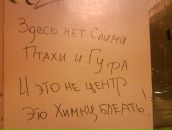 Здесь нет Слима
Птахи и Гуфа
И это не центр
Это Химки, блеать!